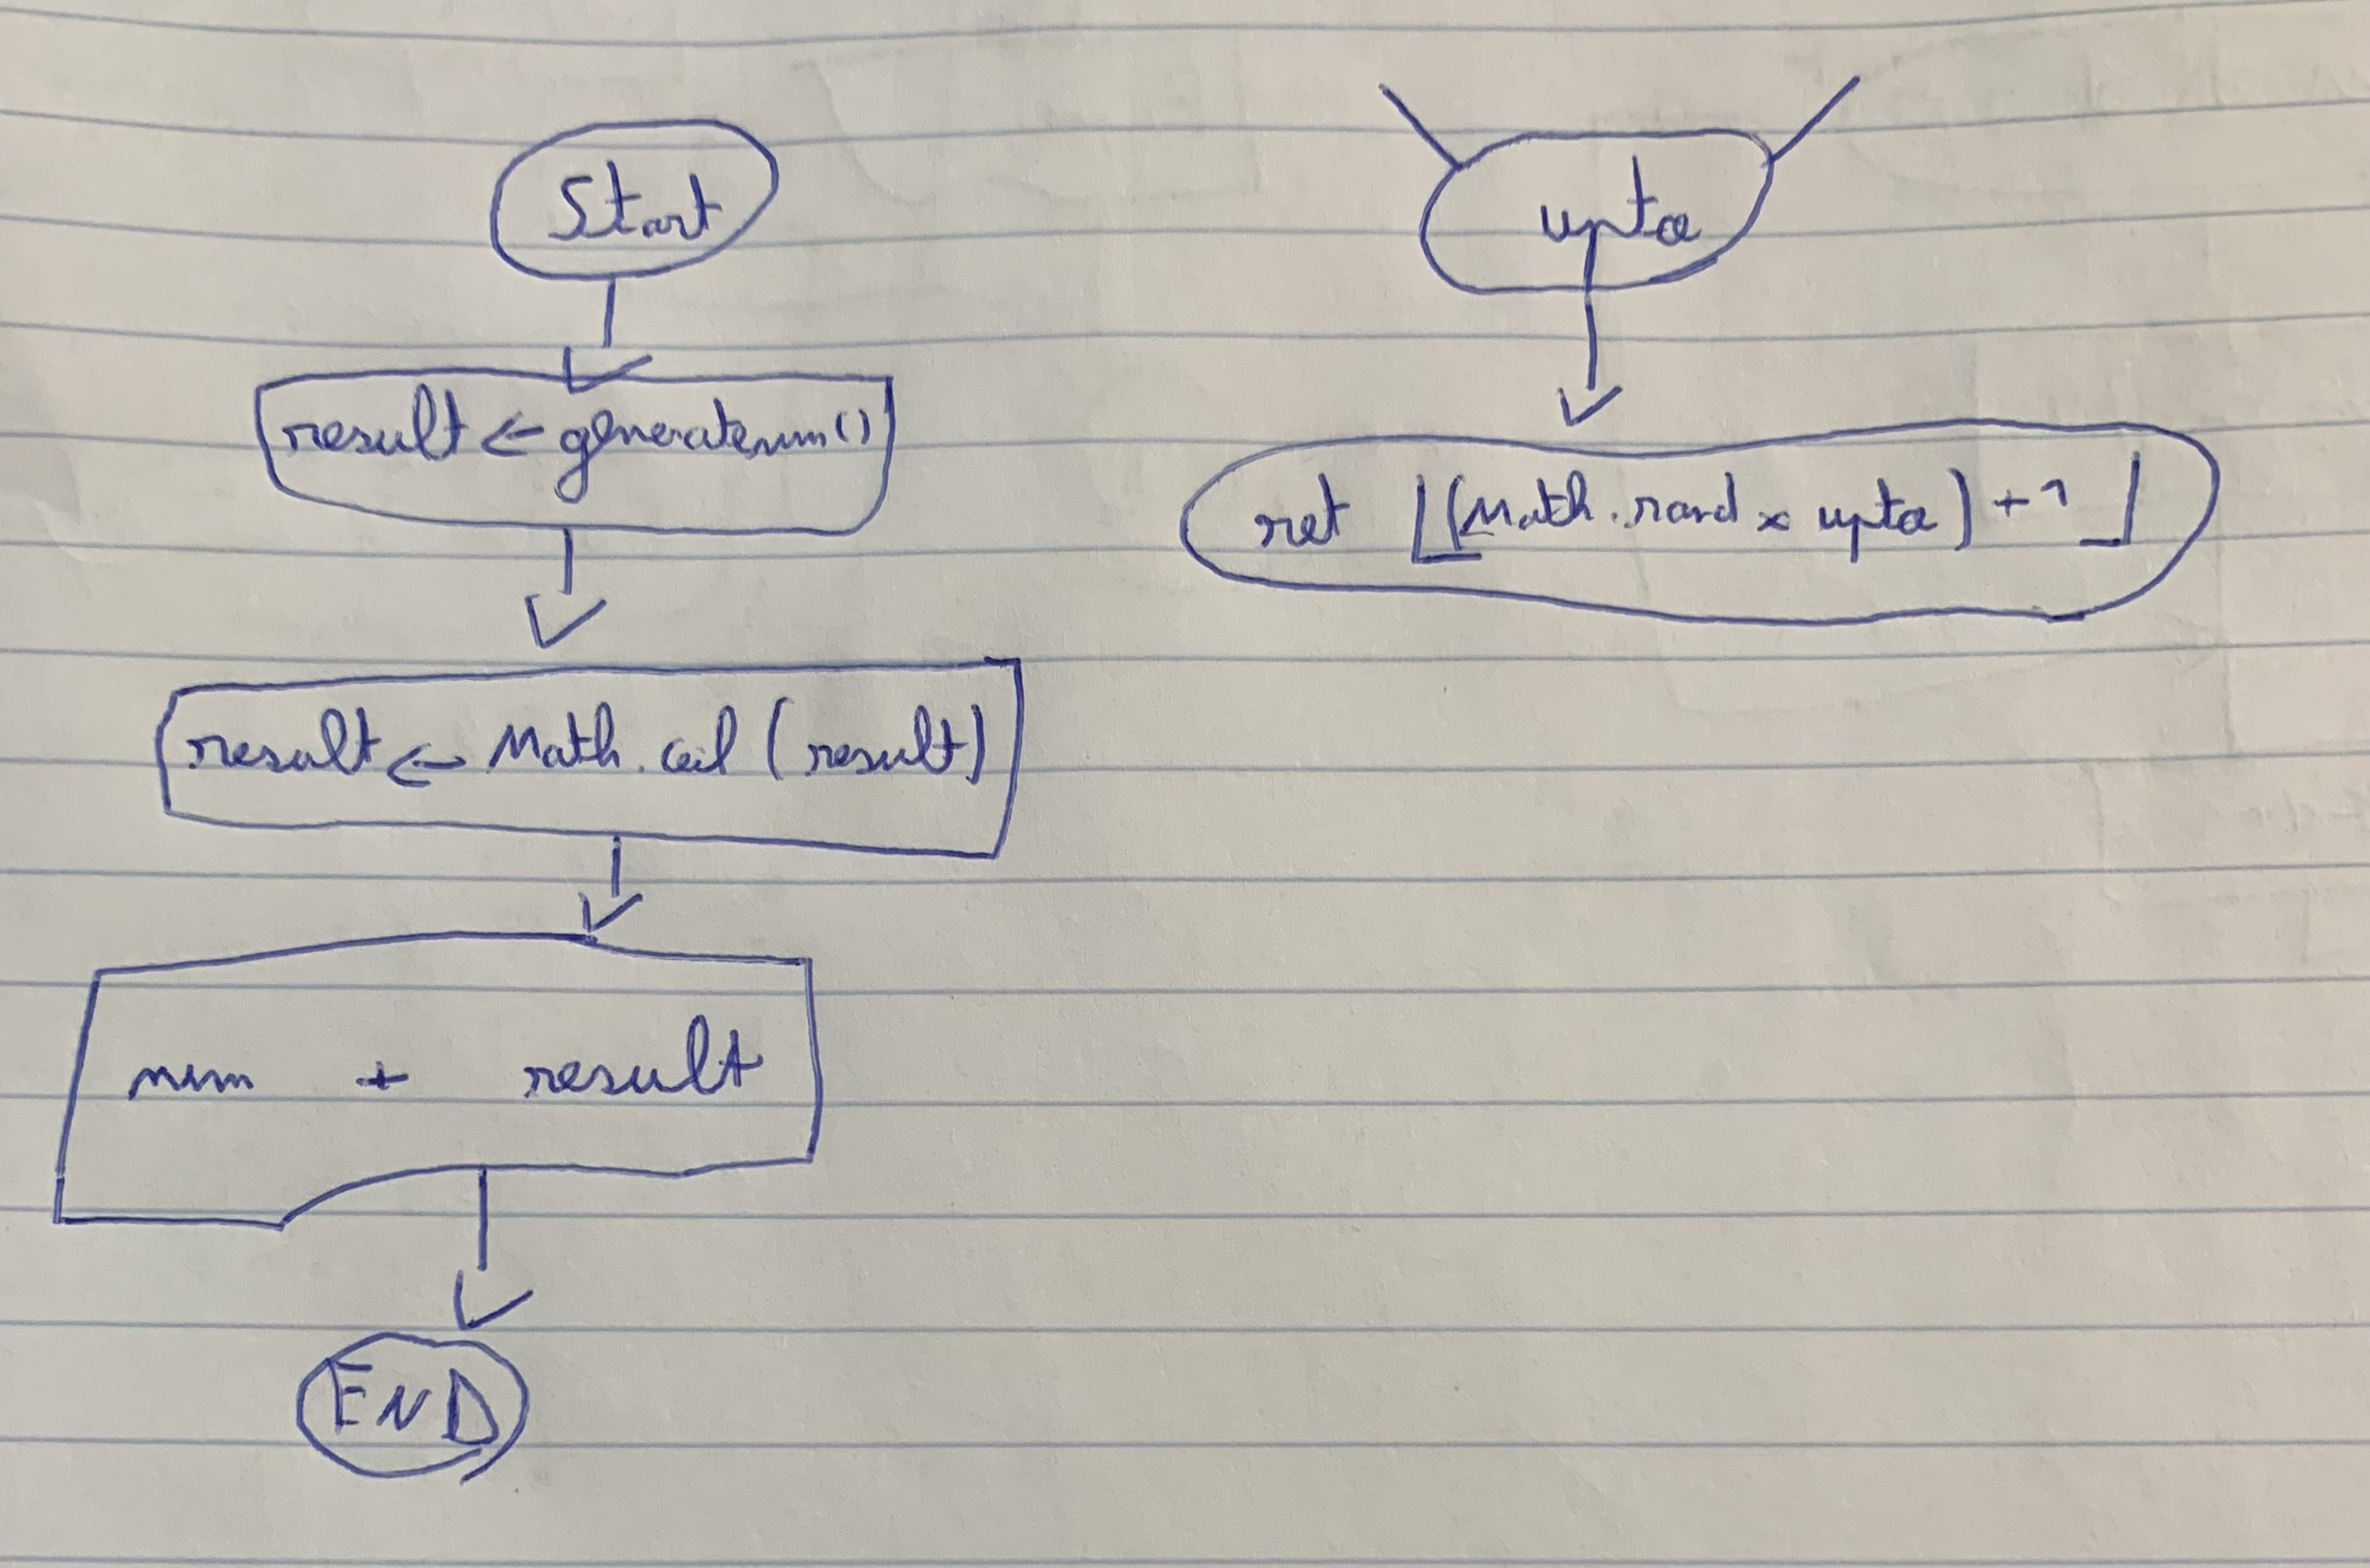 Start
result ← generatenum()
result ← Math.ceil (result)
num + result
END
upto
ret ⌊(Math.rand × upto) + 1⌋